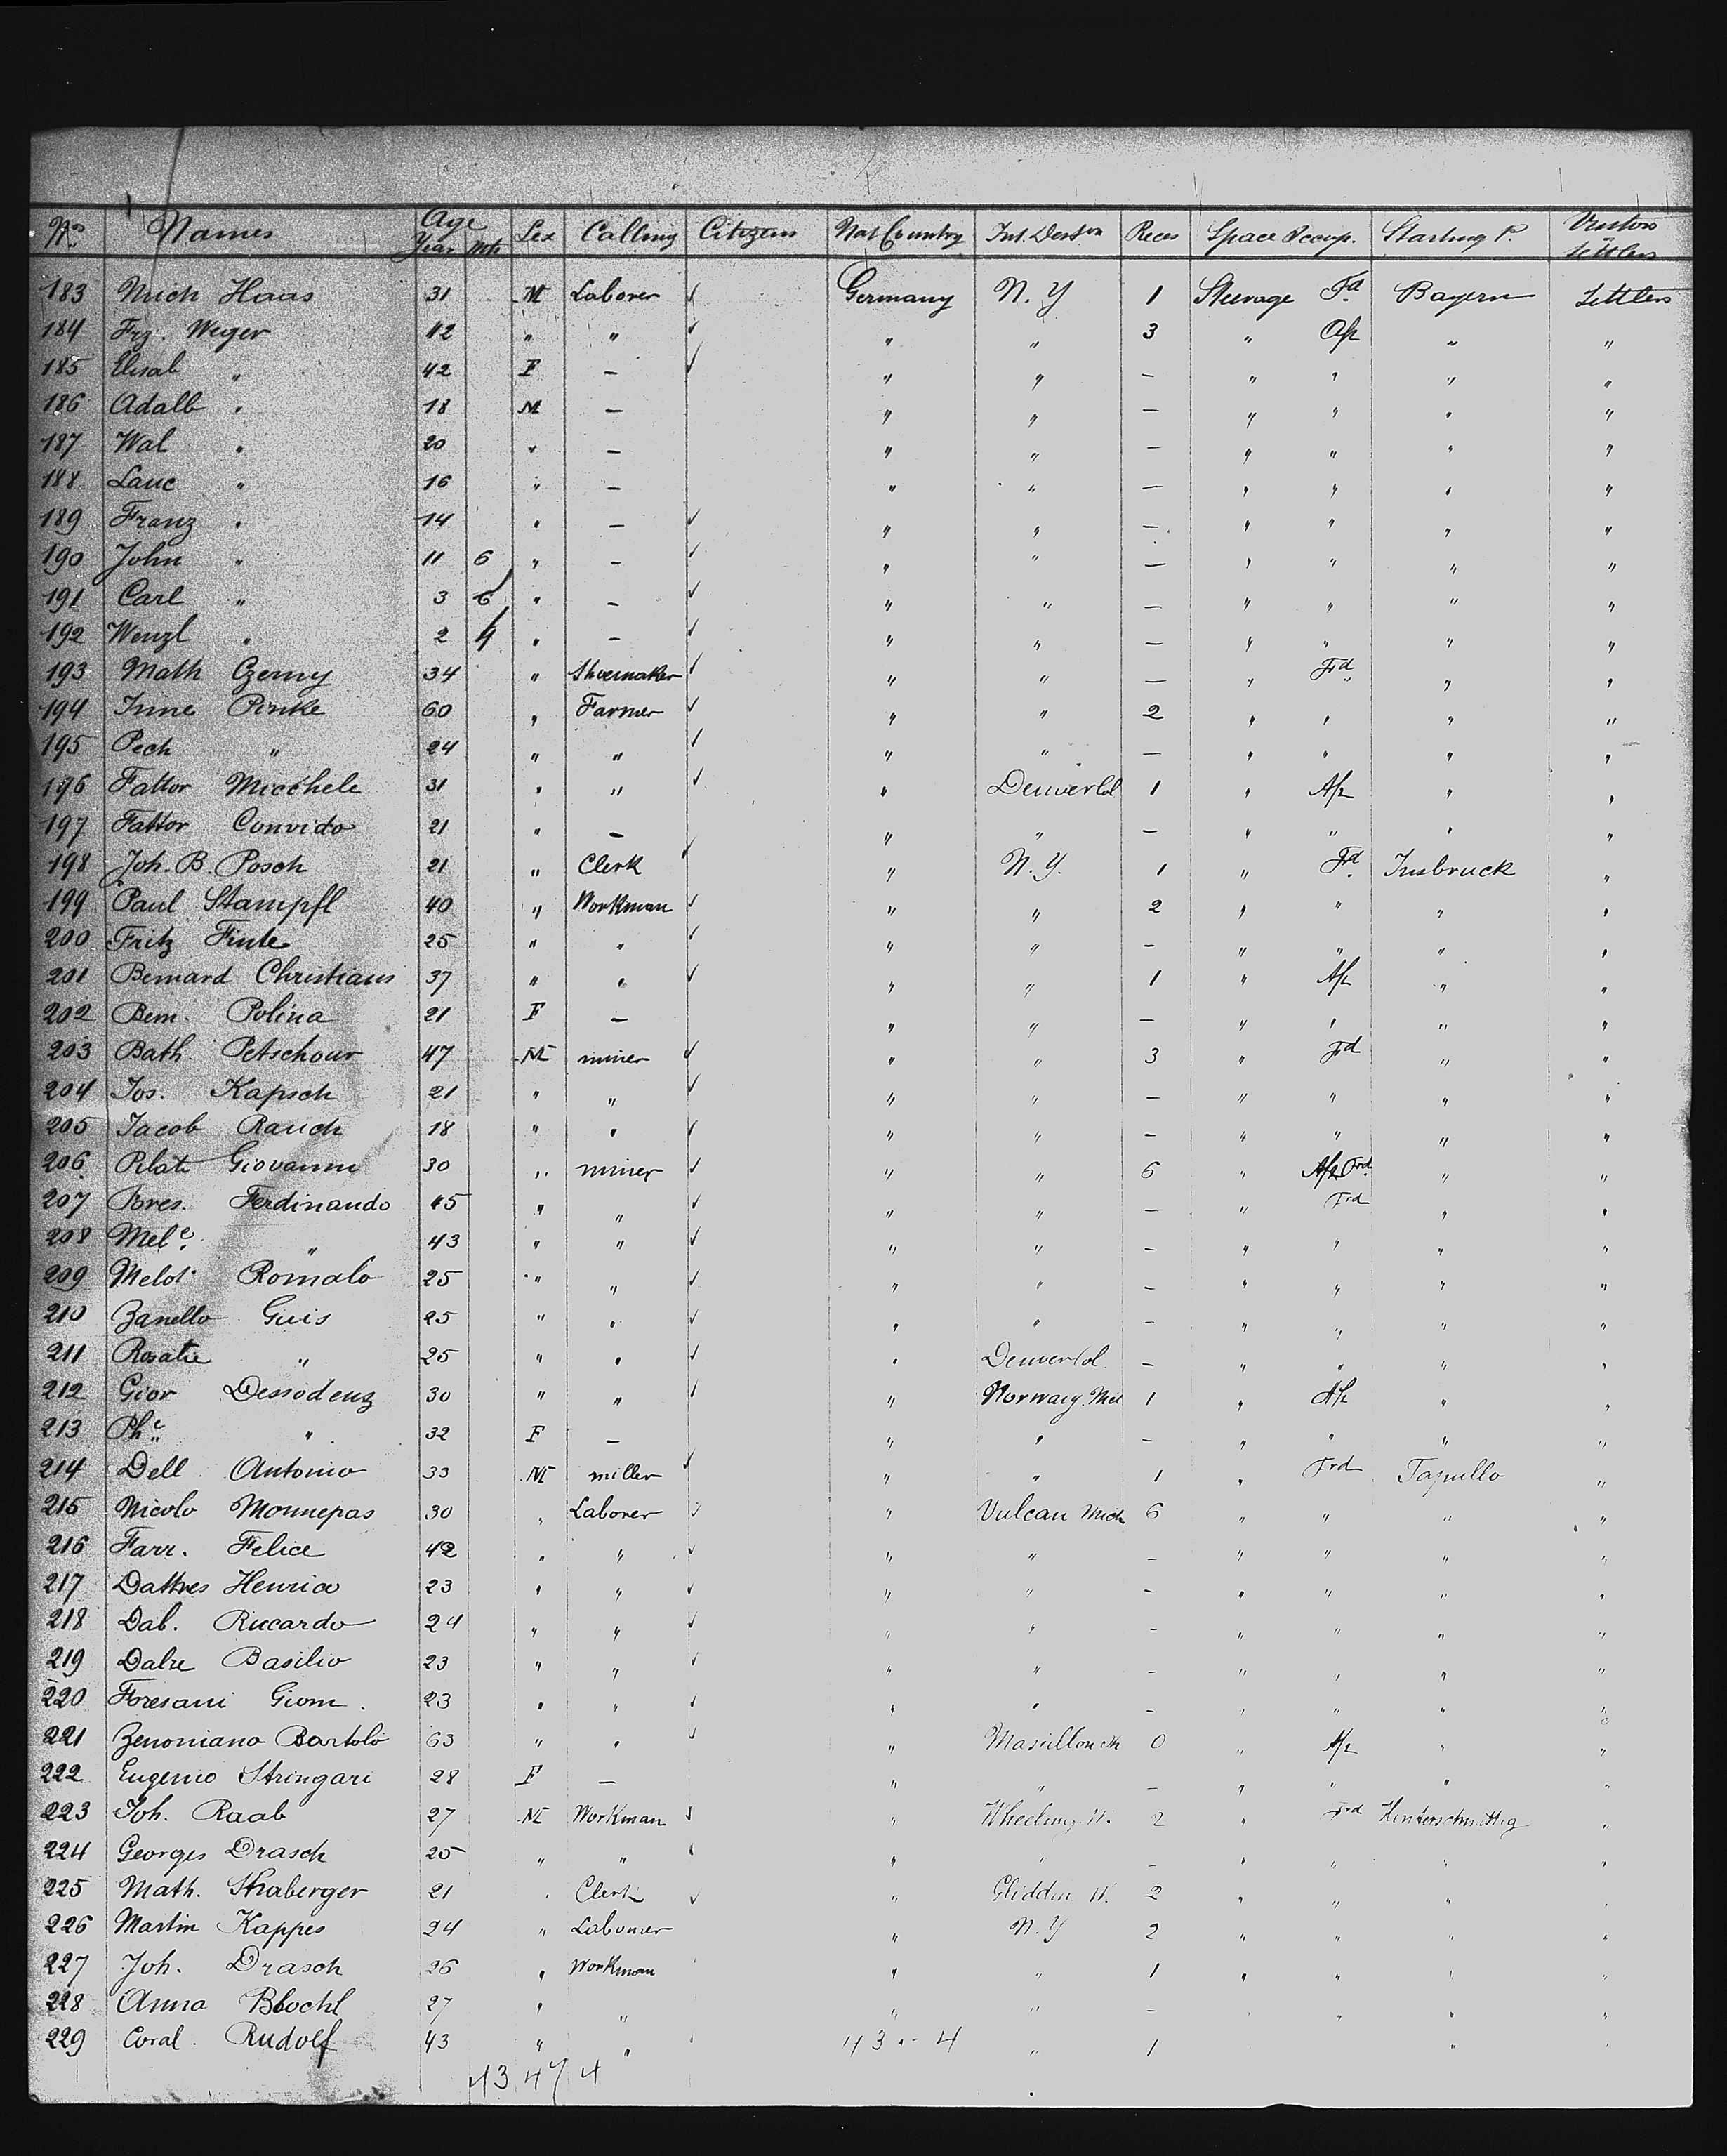 No. Names Age Year Mts Sex Calling Citizens Nat Country Int. Deston Pieces Space Occup. Starting P. Visitors Settlers
183 Mich Haas 31 M Laborer ✓ Germany N. Y 1 Steerage Fd Bayern Settlers
184 Frz. Weger 42 " " ✓ " " 3 " Aft " "
185 Elisab " 42 F — ✓ " " — " " " "
186 Adalb " 18 M — " " — " " " "
187 Wal " 20 " — " " — " " " "
188 " 16 " — " " — " " " "
189 Franz " 14 " — ✓ " " — " " " "
190 John " 11 6 " — ✓ " " — " " " "
191 Carl " 3 6 " — ✓ " " — " " " "
192 Wenzl " 2 4 " — ✓ " " — " " " "
193 Math Czerny 34 " Shoemaker ✓ " " — " Frd " "
194 Pinke 60 " Farmer ✓ " " 2 " " " "
195 Pech " 24 " " ✓ " " — " " " "
196 Fattor Micchele 31 " " ✓ " Denver Col 1 " Aft " "
197 Fattor Convido 21 " — " " — " " " "
198 Joh. B. Posch 21 " Clerk ✓ " N. Y. 1 " Fd Insbruck "
199 Paul Stampfl 40 " Workman ✓ " " 2 " " " "
200 Fritz Finte 25 " " ✓ " " — " " " "
201 Bernard Christians 37 " " ✓ " " 1 " Aft " "
202 Bern. Polina 21 F — " " — " " " "
203 Bath. Petschour 47 M miner ✓ " " 3 " Frd " "
204 Jos. Kapsch 21 " " ✓ " " — " " " "
205 Jacob Rauch 18 " " ✓ " " — " " " "
206 Giovanni 30 " miner ✓ " " 6 " Aft Frd " "
207 Bres. Ferdinando 45 " " ✓ " " — " Frd " "
208 Mele " 43 " " ✓ " " — " " " "
209 Melot Romalo 25 " " ✓ " " — " " " "
210 Zanello Guis 25 " " ✓ " " — " " " "
211 Rosatie " 25 " " ✓ " Denver Col. — " " " "
212 Gior Dessodenz 30 " " ✓ " Norway. Mich 1 " Aft " "
213 Phe " 32 F — " " — " " " "
214 Dell Antonio 33 M miller ✓ " " 1 " Frd Tapullo "
215 Nicolo Monnepas 30 " Laborer ✓ " Vulcan Mich 6 " " " "
216 Farr. Felice 42 " " ✓ " " — " " " "
217 Dattres Henrico 23 " " ✓ " " — " " " "
218 Dab. Riccardo 24 " " ✓ " " — " " " "
219 Dalre Basilio 23 " " ✓ " " — " " " "
220 Foresani Giom. 23 " " ✓ " " — " " " "
221 Zenoniano Bartolo 63 " " ✓ " 0 " Aft " "
222 Eugenio Stringari 28 F — " " — " " " "
223 Joh. Raab 27 M Workman ✓ " Wheeling W. 2 " Frd "
224 Georges Drasch 25 " " " " — " " " "
225 Math. Straberger 21 " Clerk ✓ " Glidden W. 2 " " "
226 Martin Kappes 24 " Laborer " N. Y 2 " " " "
227 Joh. Drasch 26 " Workman " " 1 " " " "
228 Anna Blochl 27 " " " " — " " "
229 Coral. Rudolf 43 " " 43 4 " 1 "
4347 4